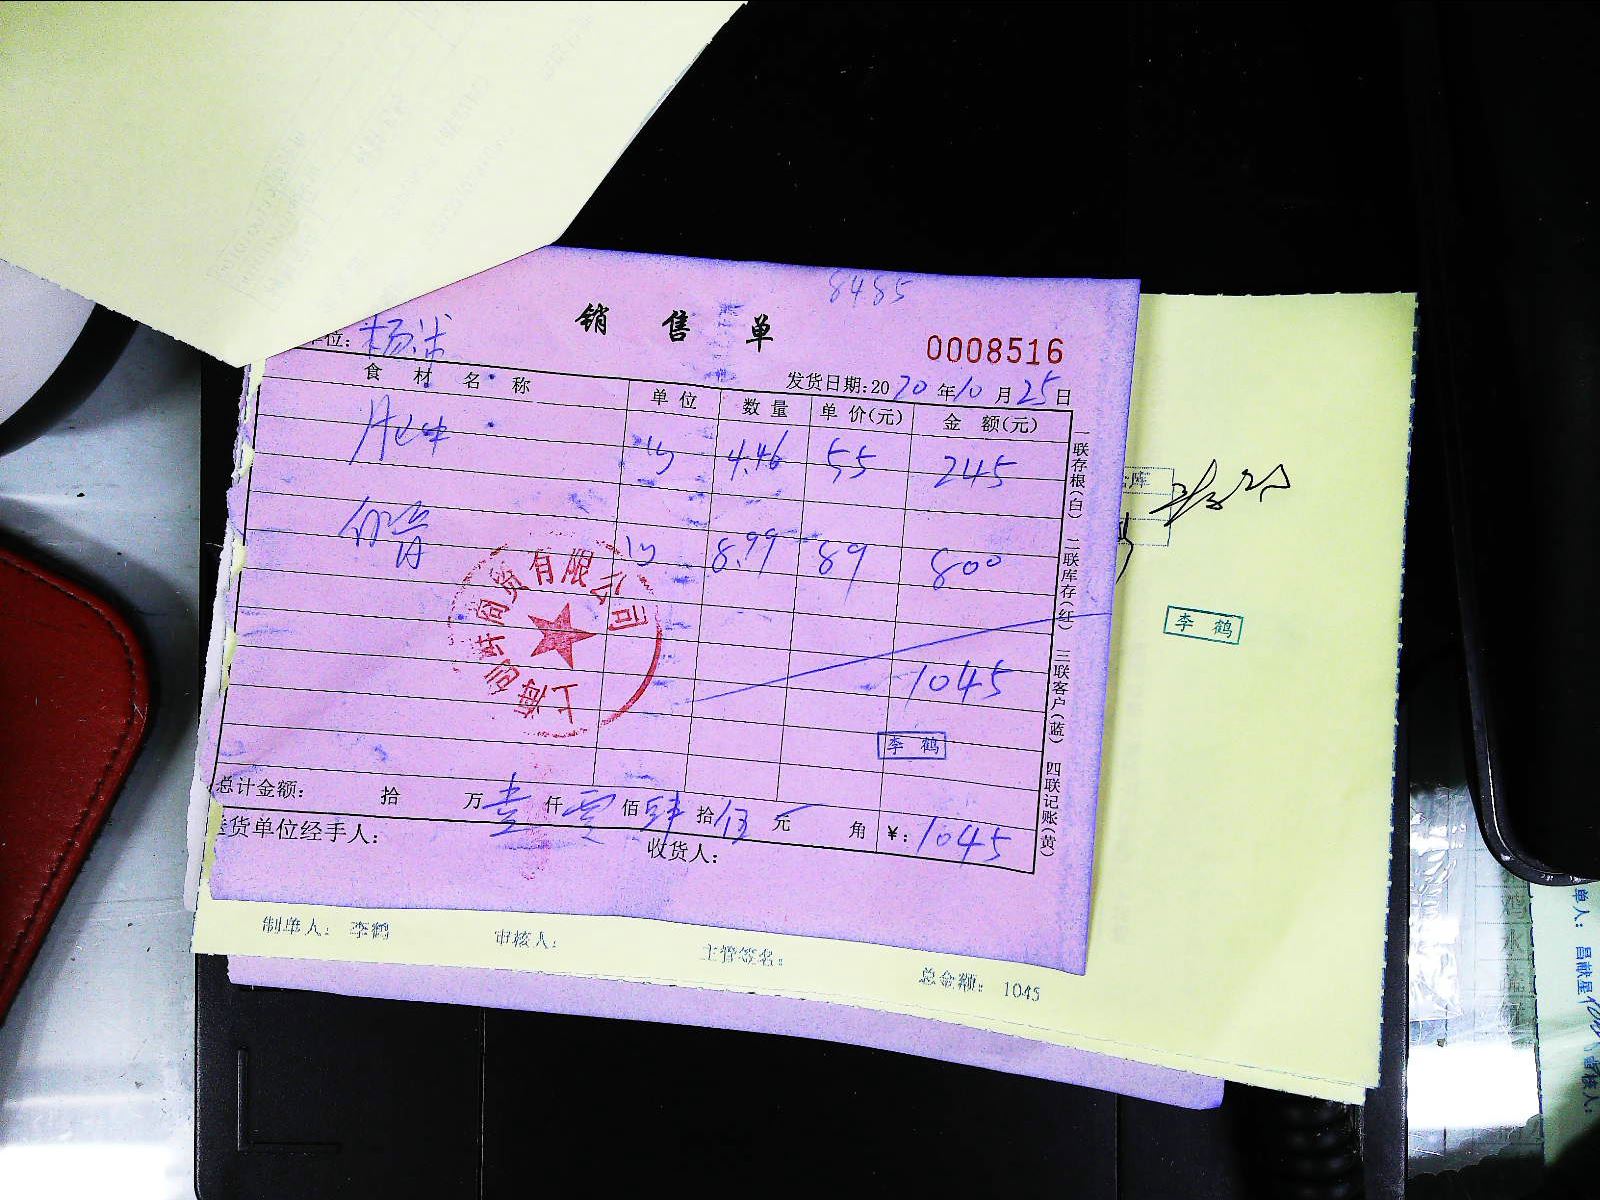 8485
销售单
0008516
位：杨米
发货日期:2020年10月25日
食材名称 单位 数量 单价(元) 金额(元)
4.46 55 245
8.99 89 800
上海 商贸有限公司
1045
李鹤
总计金额： 拾 万壹仟零佰肆拾伍元 角 ¥:1045
送货单位经手人： 收货人：
一联存根(白) 二联库存(红) 三联客户(蓝) 四联记账(黄)
库
李鹤
制单人：李鹤 审核人： 主管签名： 总金额：1045
单人：昌献星 审核人：